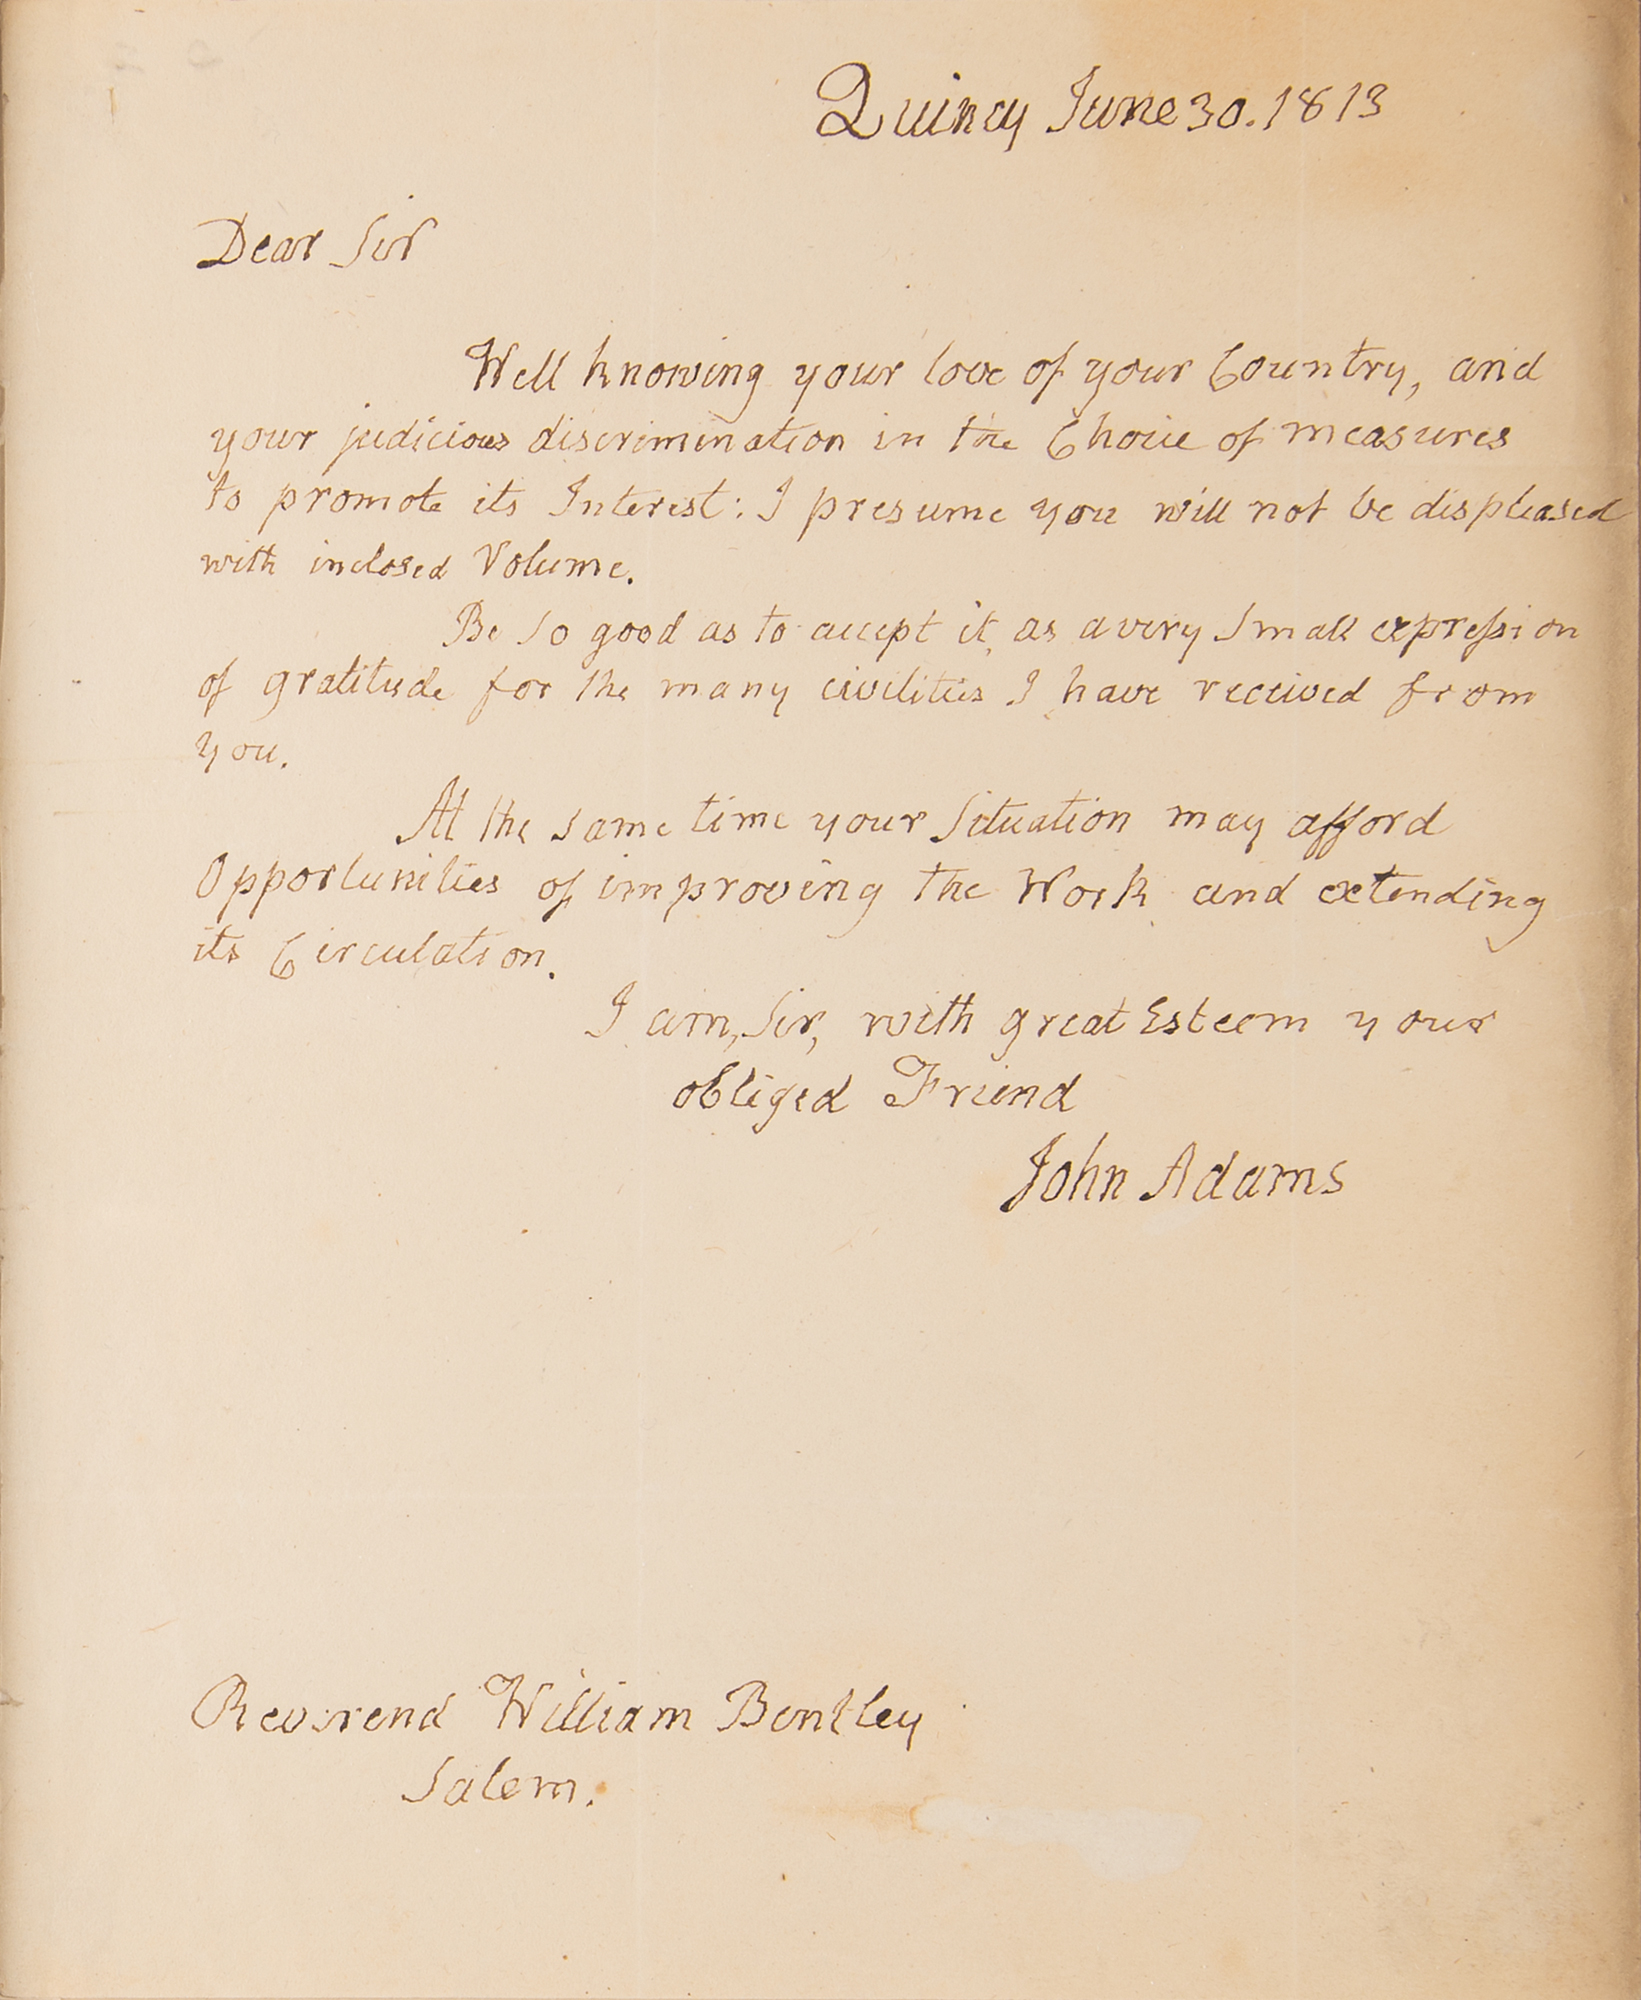 Quincy June 30. 1813
Dear Sir
Well knowing your love of your Country, and
your judicious discrimination in the Choice of measures
to promote its Interest: I presume you will not be displeased
with inclosed Volume.
Be so good as to accept it, as a very Small expreſsion
of gratitude for the many civilities I have received from
you.
At the same time your Situation may afford
Opportunities of improving the Work and extending
its Circulation.
I am, Sir, with great Esteem your
obliged Friend
John Adams
Reverend William Bentley
Salem.